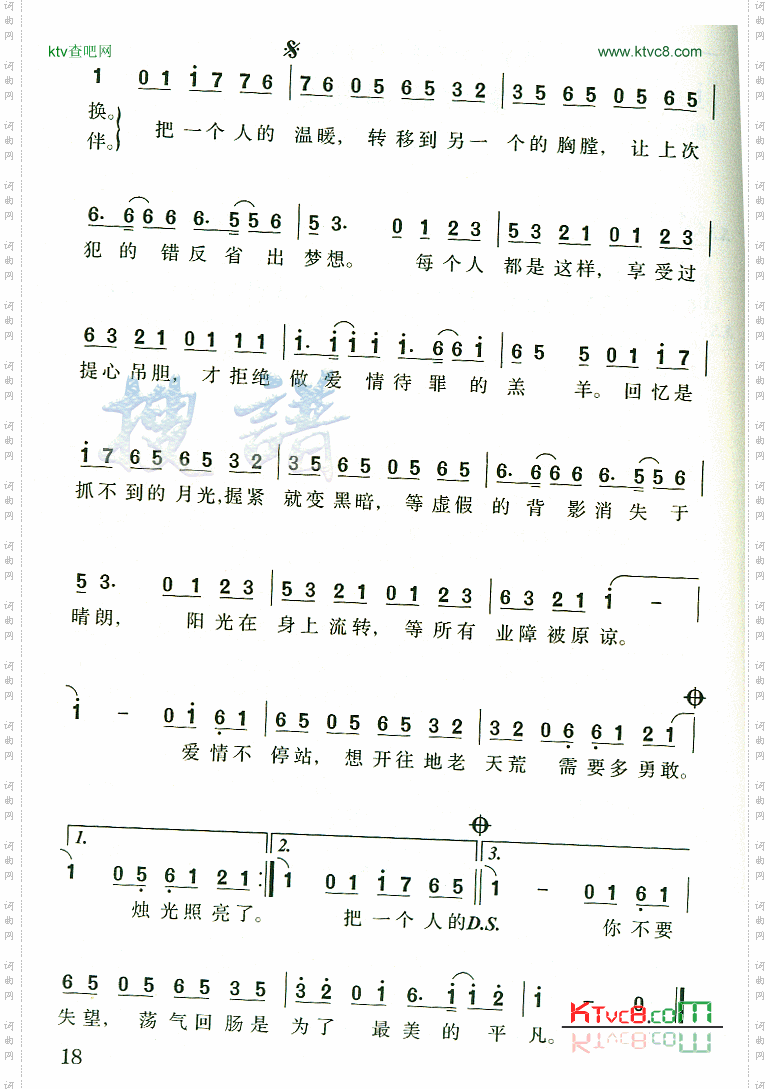 ktv查吧网 www.ktvc8.com
1 0 1 1 7 7 6 | 7 6 0 5 6 5 3 2 | 3 5 6 5 0 5 6 5 |
换。
伴。
把一个人的 温暖, 转移到另一 个的胸膛, 让上次
6· 6 6 6 6 6· 5 5 6 | 5 3· 0 1 2 3 | 5 3 2 1 0 1 2 3 |
犯的错反省出梦想。 每个人 都是这样, 享受过
6 3 2 1 0 1 1 1 | 1· 1 1 1 1· 6 6 1 | 6 5 5 0 1 1 7 |
提心吊胆, 才拒绝 做爱情待罪的羔 羊。回忆是
搜谱
1 7 6 5 6 5 3 2 | 3 5 6 5 0 5 6 5 | 6· 6 6 6 6 6· 5 5 6 |
抓不到的月光,握紧 就变黑暗, 等虚假 的背影消失于
5 3· 0 1 2 3 | 5 3 2 1 0 1 2 3 | 6 3 2 1 1 - |
晴朗, 阳光在 身上流转, 等所有 业障被原谅。
1 - 0 1 6 1 | 6 5 0 5 6 5 3 2 | 3 2 0 6 6 1 2 1 |
爱情不 停站, 想开往地老 天荒 需要多勇敢。
1. 2. 3.
1 0 5 6 1 2 1 :|| 1 0 1 1 7 6 5 || 1 - 0 1 6 1 |
烛光照亮了。 把一个人的D.S. 你不要
6 5 0 5 6 5 3 5 | 3 2 0 1 6· 1 1 2 | 1 - 0 ||
失望, 荡气回肠是 为了 最美的平 凡。
KTvc8.com
18
词曲网